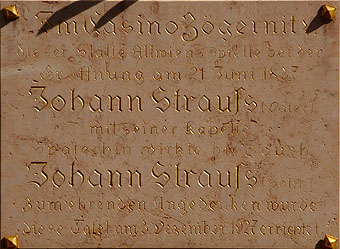 Im Casino Zögernitz
dieser Stätte spielte bei der
Eröffnung am 21 Juni
Johann Strauſs
mit seiner Kapelle
wirkte hier auch
Johann Strauſs
Zum ehrenden Angedenken wurde
diese Tafel am 3. Dezember errichtet